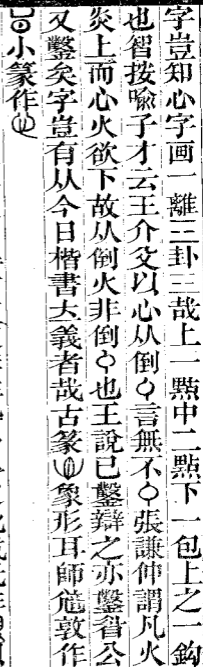 字豈知心字画一離三卦三哉上一點中二點下一包上之一鈎
也智按喻子才云王介父以心从倒言無不張謙仲謂凡火
炎上而心火欲下故从倒火非倒也王說已鑿辯之亦鑿眢公
又鑿矣字豈有从今日楷書大義者哉古篆象形耳師𩛥敦作
小篆作